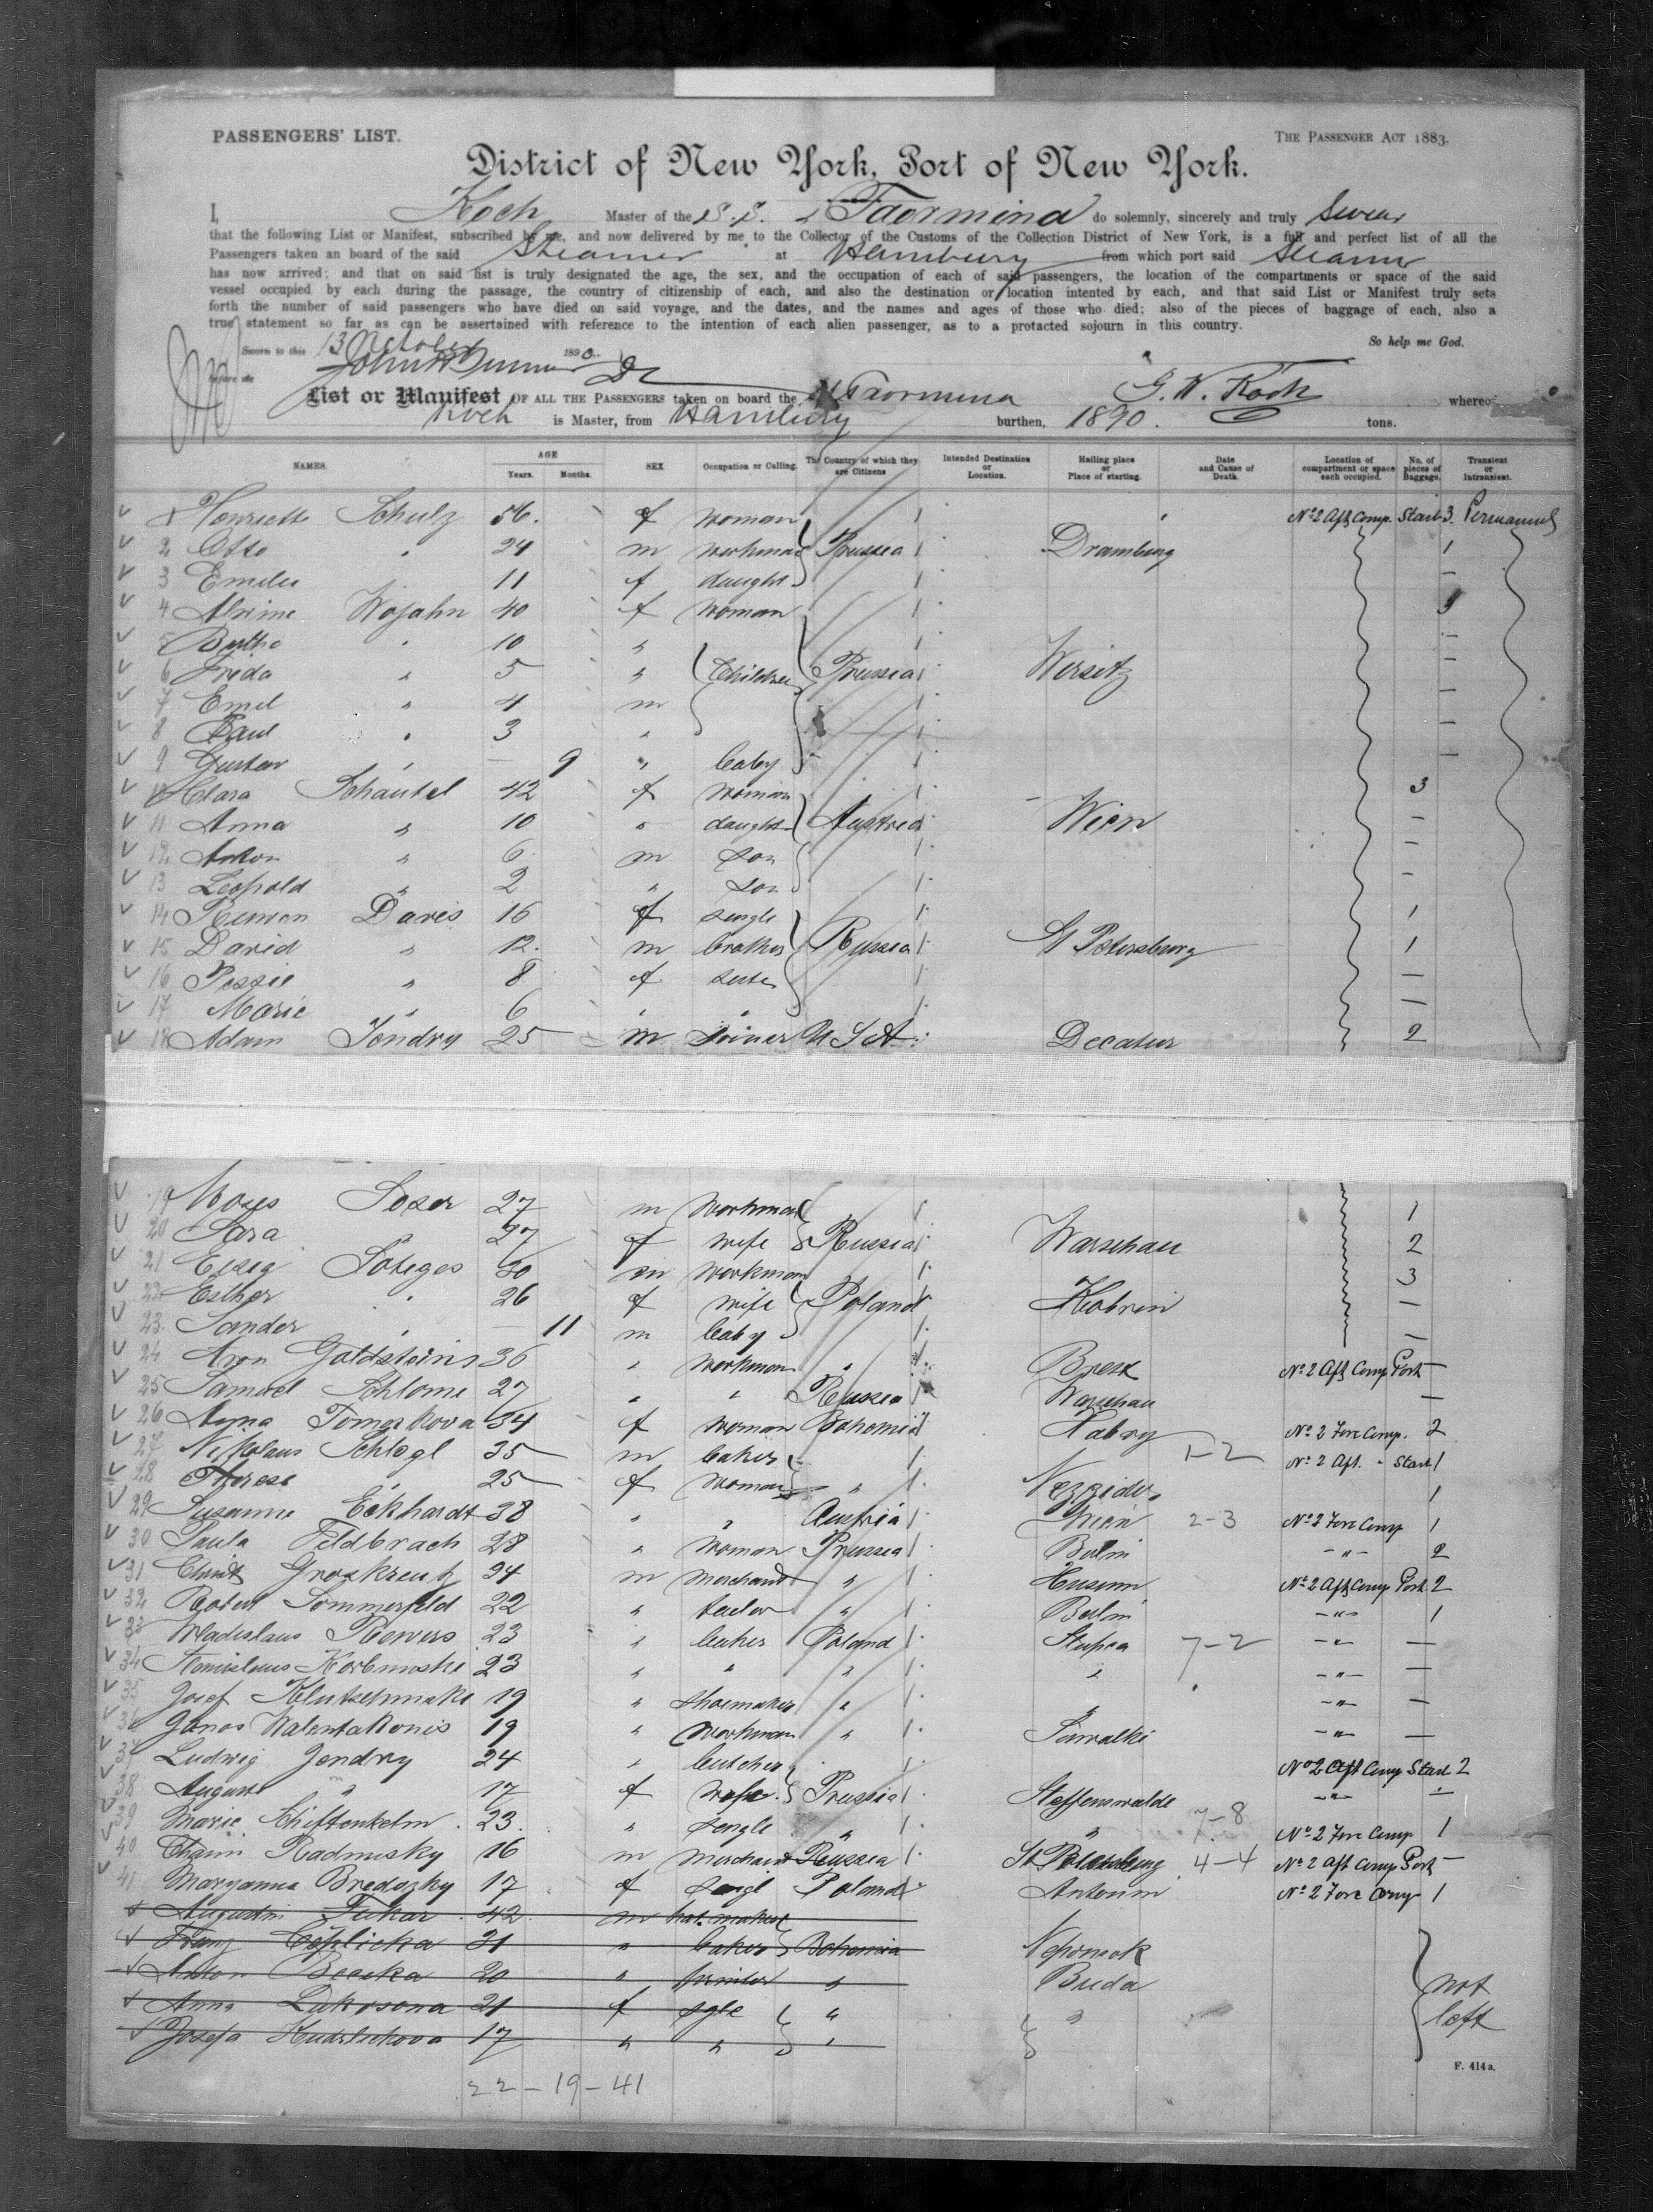 PASSENGERS' LIST.
THE PASSENGER ACT 1883.
District of New York, Port of New York.
I, Koch Master of the S.S. Taormina do solemnly, sincerely and truly swear
that the following List or Manifest, subscribed by me, and now delivered by me to the Collector of the Customs of the Collection District of New York, is a full and perfect list of all the
Passengers taken an board of the said Steamer at Hamburg from which port said Steamer
has now arrived; and that on said list is truly designated the age, the sex, and the occupation of each of said passengers, the location of the compartments or space of the said
vessel occupied by each during the passage, the country of citizenship of each, and also the destination or location intented by each, and that said List or Manifest truly sets
forth the number of said passengers who have died on said voyage, and the dates, and the names and ages of those who died; also of the pieces of baggage of each, also a
true statement so far as can be assertained with reference to the intention of each alien passenger, as to a protacted sojourn in this country.
Sworn to this 13 October 1890. So help me God.
before me
List or Manifest OF ALL THE PASSENGERS taken on board the Taormina G. W. Koch whereof
Koch is Master, from Hamburg burthen, 1890. tons.
NAMES. AGE Years. Months. SEX Occupation or Calling. The Country of which they are Citizens Intended Destination or Location. Hailing place or Place of starting. Date and Cause of Death. Location of compartment or space each occupied. No. of pieces of Baggage. Transient or Intransient.
1 Henriette Schulz 56. f woman No 2 Aft Comp. Starb 3. Permanent
2 Otto " 24 m workman Prussia Dramburg 1
3 Emilie 11 f daught —
4 Alvine Wojahn 40 f woman 3
5 Bertha " 10 " —
6 Freda " 5 " Children Prussia Wirsitz —
7 Emil " 4 m —
8 Paul " 3 " —
9 Gustav " — 9 " baby —
10 Clara Schantel 42 f woman 3
11 Anna " 10 " daught Austria Wien —
12 Anton " 6 m son —
13 Leopold " 2 " son —
14 Davis 16 f single 1
15 David " 12. m brother Russia St Petersburg 1
16 Pessie " 8 f sister —
17 Marie " 6 " " —
18 Adam Jendry 25 m Joiner U S A Decatur 2
19 Moses 27 m workman 1
20 Sara " 27 f wife Russia Warschau 2
21 30 m workman 3
22 Esther " 26 f wife Poland Kobrin —
23. Sander " — 11 m baby —
24 Aron Goldstein 36 " workman " Brest No 2 Aft Comp Port —
25 Samuel Schlome 27 " " Russia Warschau —
26 Anna Tomaskova 34 f woman Bohemia Habry No 2 Fore Comp. 2
27 Nikolaus Schlogl 35 m baker 1-2 No 2 Aft. " Starb 1
28 Therese " 25 f woman " Nezsider 1
29 Susanne Eckhardt 38 " " Austria Wien 2-3 No 2 Fore Comp 1
30 Paula Feldbrach 28 " woman Prussia Berlin — " — 2
31 Groskreutz 24 m merchant " Husum No 2 Aft Comp Port 2
32 Robert Sommerfeld 22 " tailor " Berlin — " — 1
33 Wladislaus 23 " baker Poland Slupca 7-2 — " — —
34 Stanislaus 23 " " " " — " — —
35 Josef 19 " shoemaker " — " — —
36 Janos Walentakonis 19 " workman " Suwalki — " — —
37 Ludwig Jendry 24 " butcher No 2 Aft Comp Starb 2
38 Auguste " 17 f wife Prussia Steffenswalde — " —
39 Marie Schiftenkelm 23. " single " " 7-8 No 2 Fore Comp 1
40 Chaim Radmisky 16 m merchant Russia St Petersburg 4-4 No 2 Aft Comp Port —
41 Maryanna Bredozky 17 f singl Poland Antonin No 2 Fore Comp 1
Augustin Fukar 42 m hat maker
Franz Ceplicka 21 " baker Bohemia Nepomuk
Anton 20 " " Buda not
Anna 21 f sgle " " left
Josefa 17 " " "
F. 414 a.
22-19-41